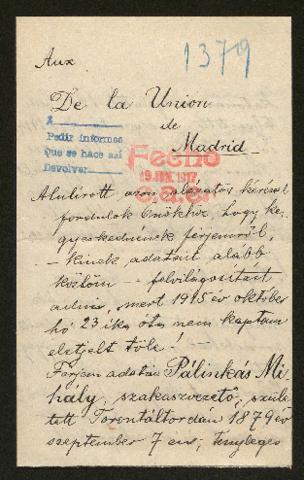 1379
Aux
De la Union
de
Madrid
Pedir informes
Que se hace así
Devolver
Fecho
Alulirott azon alázatos kéréssel
fordulok Önökhöz, hogy ke-
gyeskednének férjemről,
– kinek adatait alább
közlöm – felvilágosítást
adni, mert 1915 év október
hó 23 ika óta nem kaptam
életjelt tőle!
Férjem adatai Pálinkás Mi-
hály, szakaszvezető, szüle-
tett Torontáltordán 1879 év
szeptember 7 én, tényleges